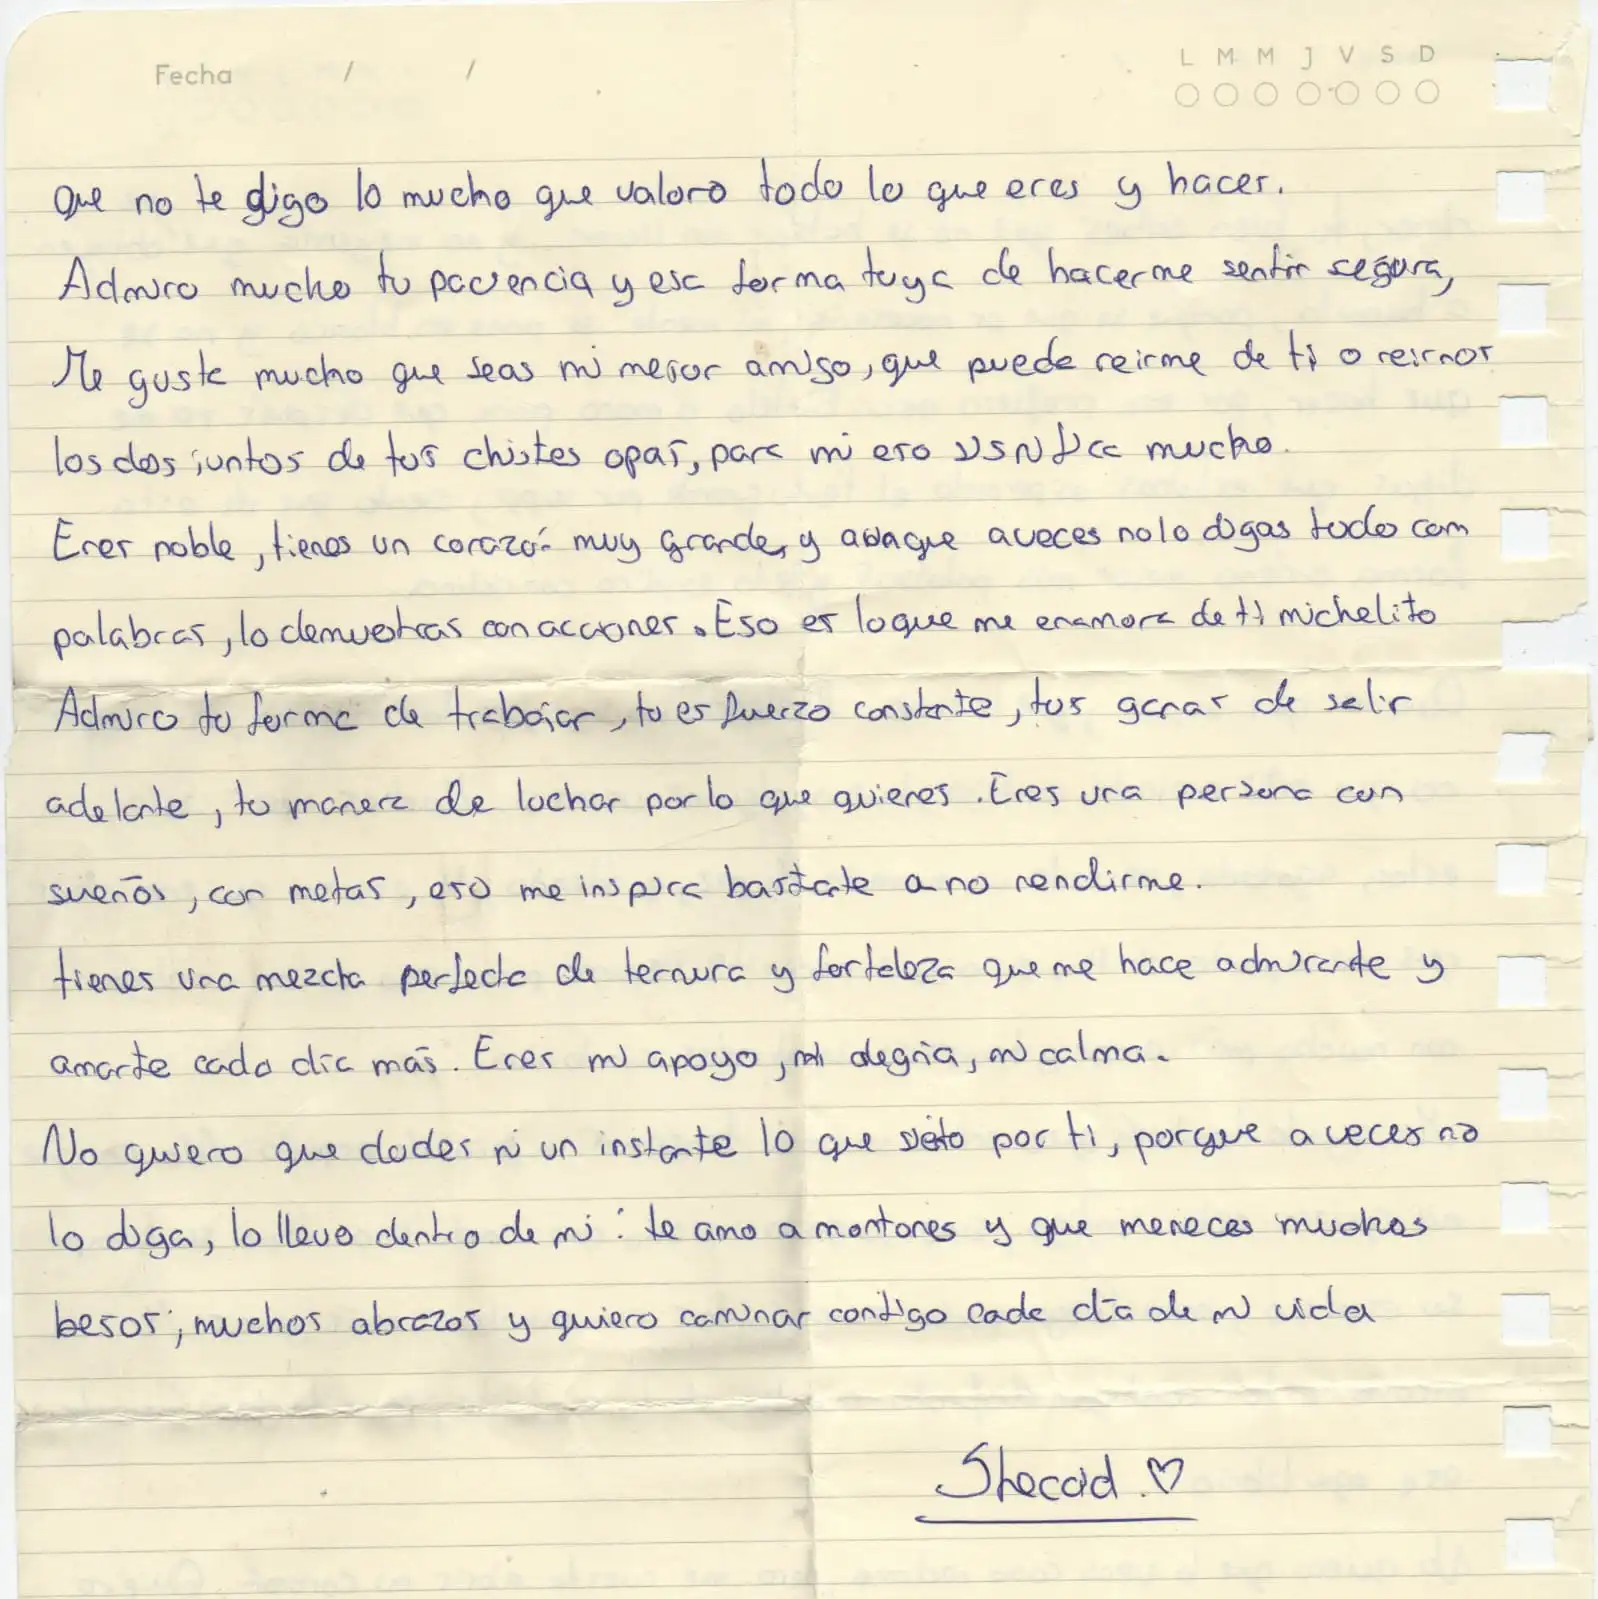 Fecha / /
L M M J V S D
Que no te digo lo mucho que valoro todo lo que eres y haces.
Admiro mucho tu paciencia y esa forma tuya de hacerme sentir segura,
Me gusta mucho que seas mi mejor amigo, que puede reirme de ti o reirnos
los dos juntos de tus chistes opas, para mi eso significa mucho.
Eres noble, tienes un corazón muy grande, y aunque aveces no lo digas todo com
palabras, lo demuestras con acciones. Eso es lo que me enamora de ti michelito
Admiro tu forma de trabajar, tu esfuerzo constante, tus ganas de salir
adelante, tu manera de luchar por lo que quieres. Eres una persona con
sueños, con metas, eso me inspira bastate a no rendirme.
tienes una mezcla perfecta de ternura y fortaleza que me hace admirarte y
amarte cada día más. Eres mi apoyo, mi alegria, mi calma.
No quiero que dudes ni un instante lo que sieto por ti, porque a veces no
lo diga, lo llevo dentro de mi: te amo a montones y que mereces muchos
besos; muchos abrazos y quiero caminar contigo cada día de mi vida
Sheccid. ♡